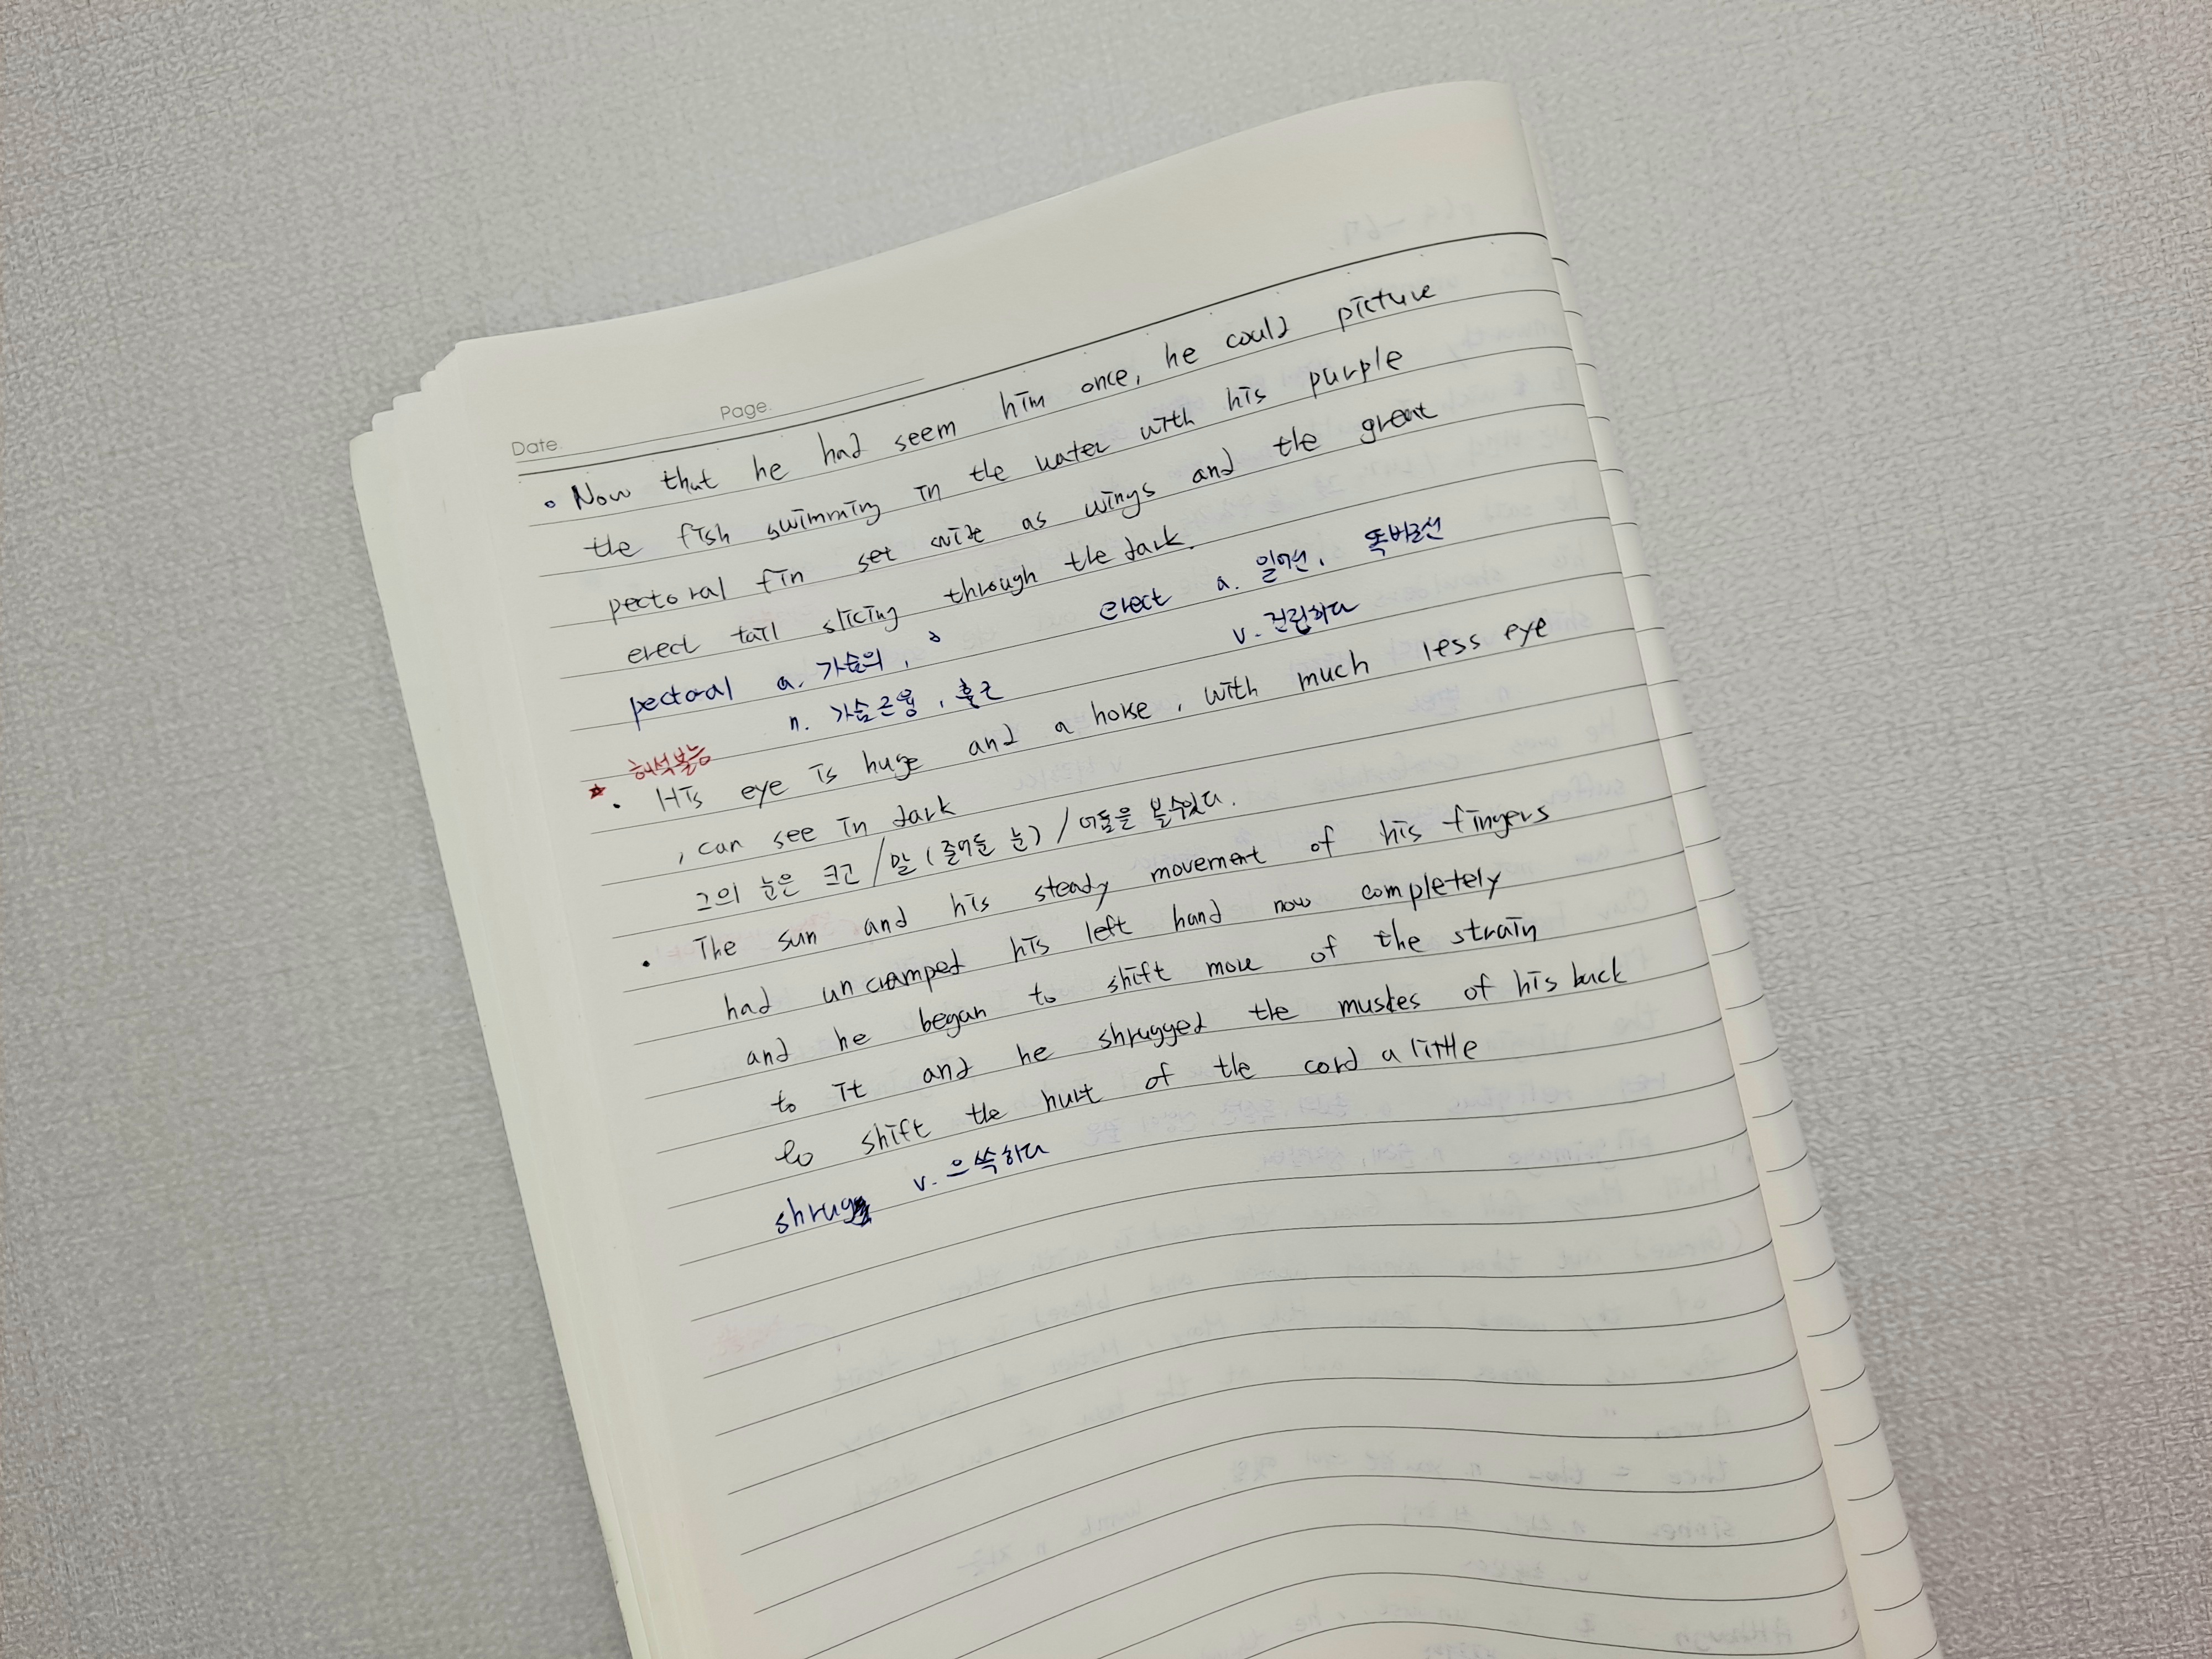 Page.
Date.
Now that he had seem him once, he could picture
the fish swimming in the water with his purple
pectoral fin set wide as wings and the great
erect tail slicing through the dark.
erect a. 일어선, 똑바로선
v. 건립하다
pectoral a. 가슴의,
n. 가슴근육, 흉근
해석불능
His eye is huge and a horse, with much less eye
, can see in dark
그의 눈은 크고 / 말 (줄어든 눈) / 어둠을 볼수있다.
The sun and his steady movement of his fingers
had uncramped his left hand now completely
and he began to shift more of the strain
to it and he shrugged the muscles of his back
to shift the hurt of the cord a little
shrug v. 으쓱하다